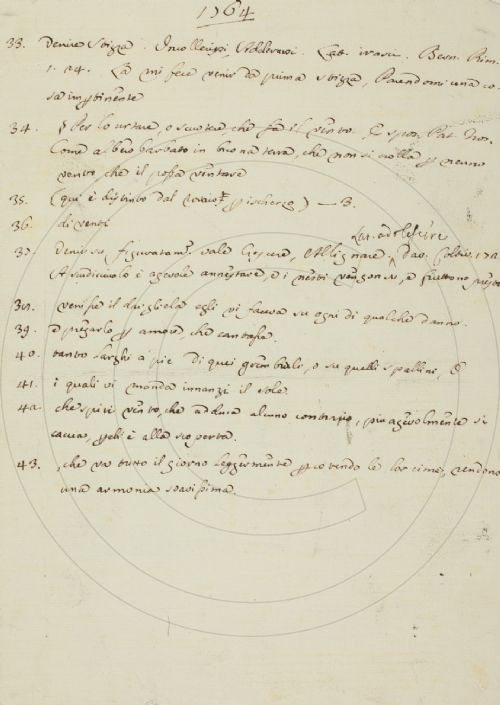 1764
33. Venire Stizza. Incollerirsi, Adirarsi. Latt. irasci. Bern. Rim.
1. 24. La mi fece venir da prima stizza, Parendomi una co-
sa impertinente
34. Per lo urtare, o scuotere che fa il vento. Espos. Pat. Nos.
Come albero barbato in buona terra, che non si crolla p neuno
vento, che il possa ventare
35. (qui è distinto dal p ischerzo) — 3.
36. di venti
37. Venir su figuratam. vale Crescere, Allignare. Lat. adolescere Dav. Coltiv. 172
Assudiciolo è agevole annestare, e i nesti vengon su, e fruttono presto
38. verisse il dargliela egli vi faceva su ogni dì qualche danno.
39. e pregarlo p amore, che cantasse.
40. tanto larghi a piè di quei grembiali, o su quelli spallini, E
41. i quali vi manda innanzi il sole.
42. che spiri vento, che adduca alcuno contrario, più agevolmente si
caccia, pchè è alla scoperta.
43. , che va tutto il giorno leggermente pcotendo le lor cime, rendono
una armonia soavissima.